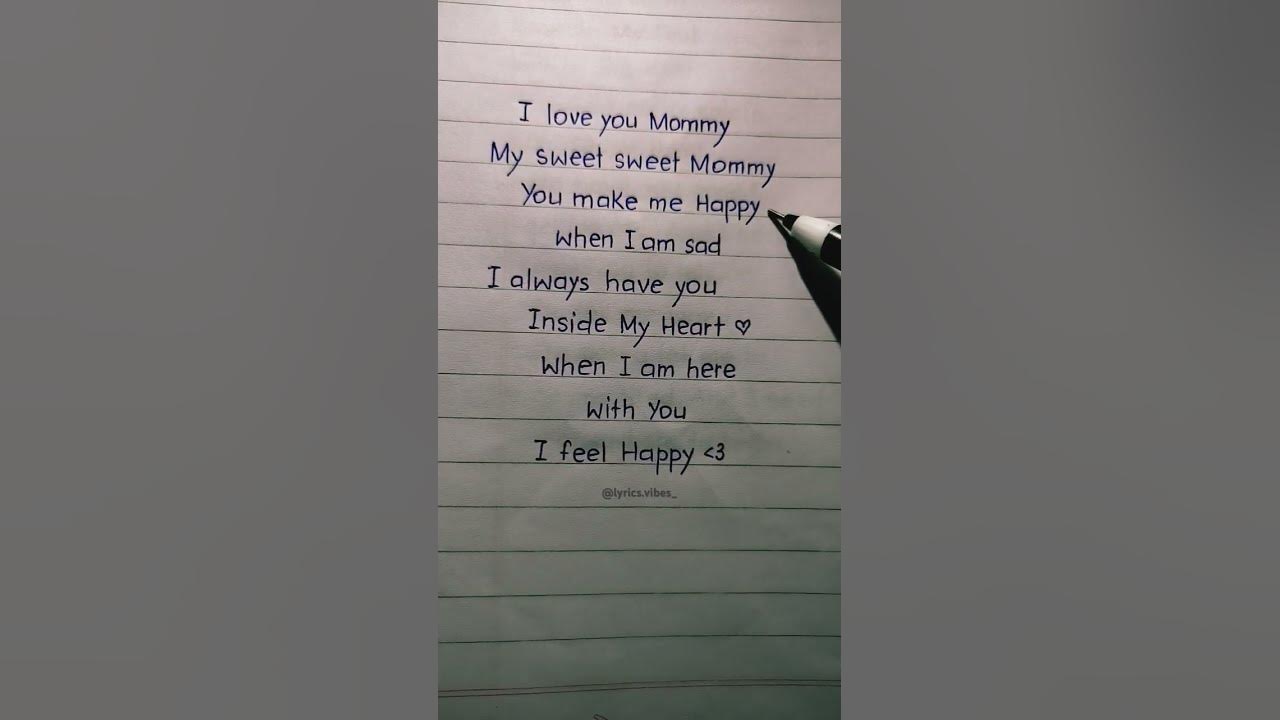 I love you Mommy
My sweet sweet Mommy
You make me Happy
when I am sad
I always have you
Inside My Heart ♡
When I am here
with You
I feel Happy <3
@lyrics.vibes_